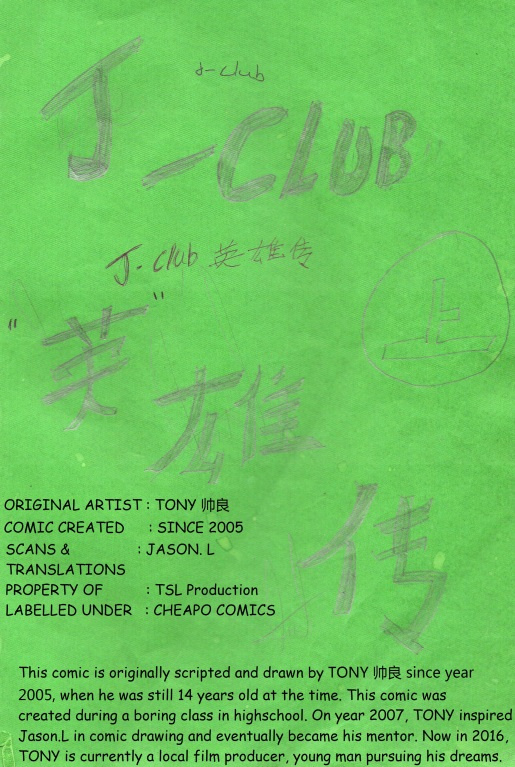 J-club
J-CLUB
J-club 英雄传
上
"英"
雄
传
ORIGINAL ARTIST : TONY 帅良
COMIC CREATED : SINCE 2005
SCANS & : JASON. L
TRANSLATIONS
PROPERTY OF : TSL Production
LABELLED UNDER : CHEAPO COMICS
This comic is originally scripted and drawn by TONY 帅良 since year
2005, when he was still 14 years old at the time. This comic was
created during a boring class in highschool. On year 2007, TONY inspired
Jason.L in comic drawing and eventually became his mentor. Now in 2016,
TONY is currently a local film producer, young man pursuing his dreams.